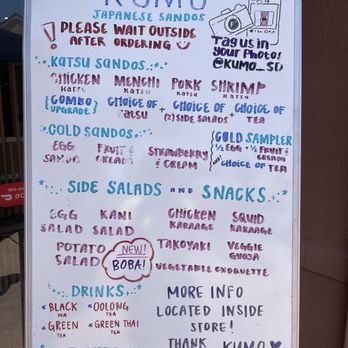 KUMO
JAPANESE SANDOS
! PLEASE WAIT OUTSIDE
AFTER ORDERING
Tag us in
your Photo!
@KUMO_SD
KATSU SANDOS
CHICKEN KATSU MENCHI KATSU PORK KATSU SHRIMP KATSU
{COMBO UPGRADE} CHOICE OF KATSU + CHOICE OF (2) SIDE SALADS + CHOICE OF TEA
COLD SANDOS
EGG SANDO FRUIT & CREAM STRAWBERRY & CREAM
COLD SAMPLER
1/2 EGG + 1/2 FRUIT & CREAM
CHOICE OF TEA
SIDE SALADS AND SNACKS
EGG SALAD KANI SALAD CHICKEN KARAAGE SQUID KARAAGE
POTATO SALAD NEW! BOBA! TAKOYAKI VEGGIE GYOZA
VEGETABLE CROQUETTE
DRINKS
BLACK TEA OOLONG TEA
GREEN TEA GREEN THAI TEA
MORE INFO
LOCATED INSIDE
STORE!
THANK
KUMO
We d
DO